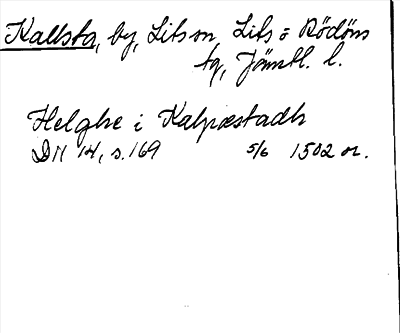 Kallsta, by, Lits sn, Lits o Rödöns
tg, Jämtl. l.
Helghe i Kalpræstadh
DN 14, s. 169 5/6 1502 or.